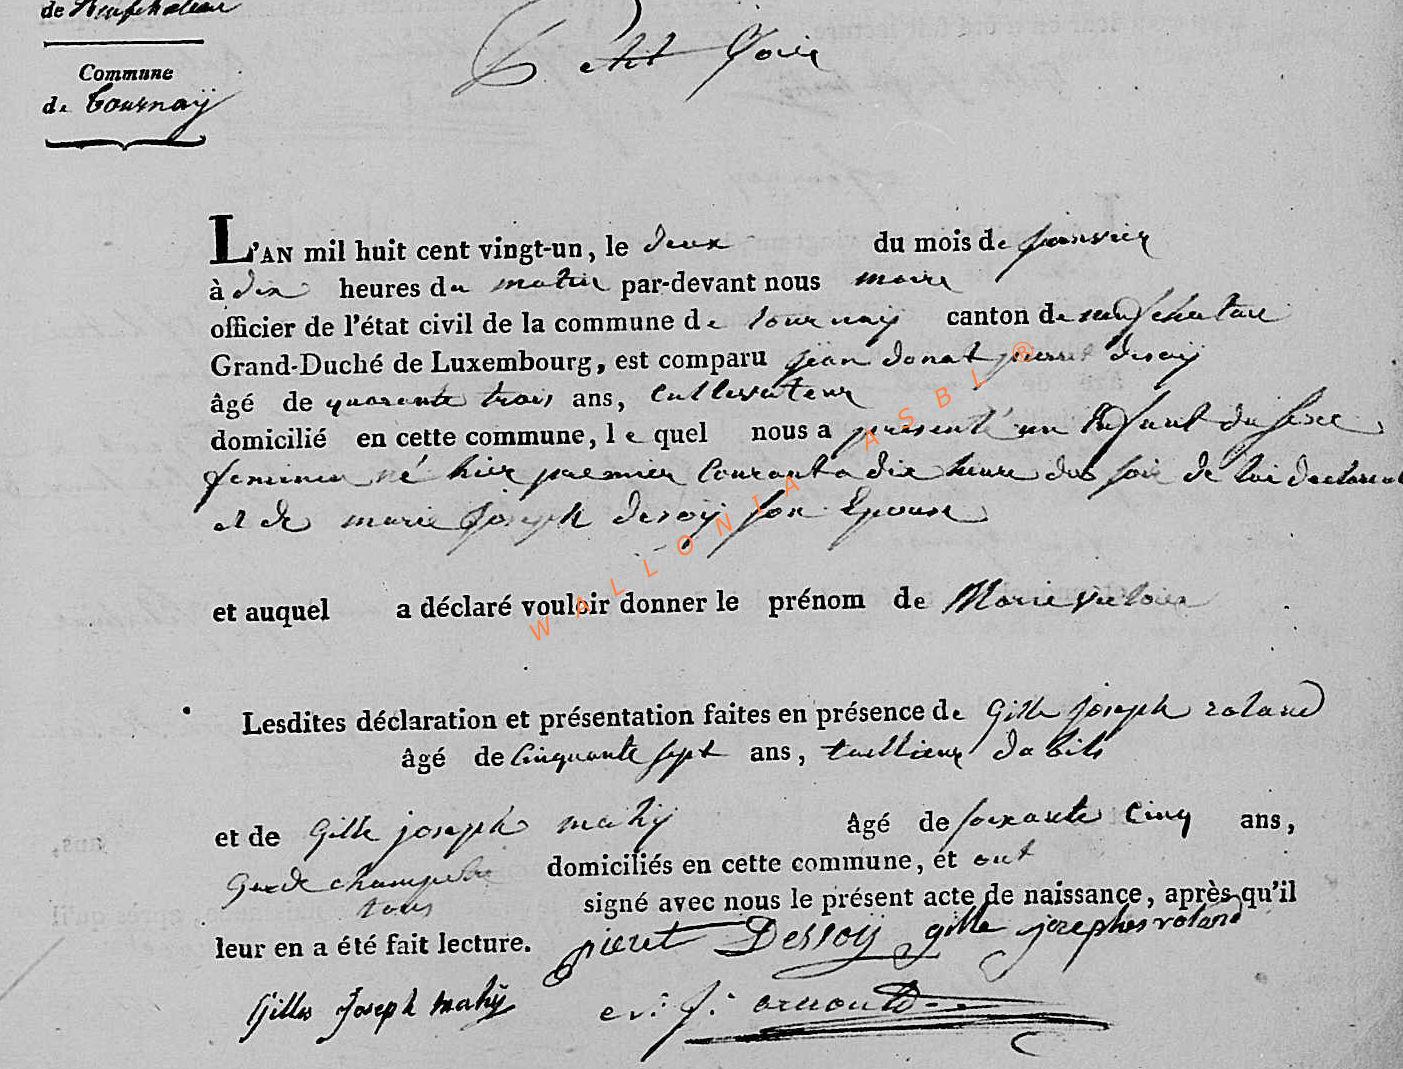 de Neufchateau
Petit Voir
Commune
de Tournaÿ
L'AN mil huit cent vingt-un, le deux du mois de janvier
à dix heures du matin par-devant nous maire
officier de l'état civil de la commune de tournaÿ canton de neufchatau
Grand-Duché de Luxembourg, est comparu jean donat pierret desoÿ
âgé de quarente trois ans, cultivateur
domicilié en cette commune, le quel nous a présenté un Enfant du sexe
feminin né hier premier Courant a dix heure du soir de lui declarant
et de marie Joseph desoÿ son Epouse
et auquel a déclaré vouloir donner le prénom de Marie victoire
Lesdites déclaration et présentation faites en présence de Gille joseph roland
âgé de Cinquante sept ans, taillieur dabits
et de Gille joseph mahÿ âgé de soixante Cinq ans,
Garde champetre domiciliés en cette commune, et ont
tous signé avec nous le présent acte de naissance, après qu'il
leur en a été fait lecture. pieret Dessoÿ gille josephes roland
Gilles Joseph mahÿ e v: j: arnould
WALLONIA ASBL ®